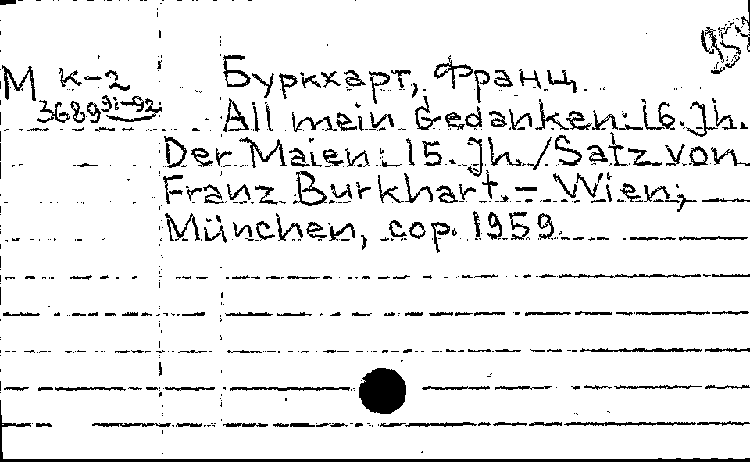 М к-2
3689 91-92
Буркхарт, Франц.
All mein Gedanken: 16. Jh.
Der Maien: 15. Jh. / Satz von
Franz Burkhart. - Wien;
München, cop. 1959.